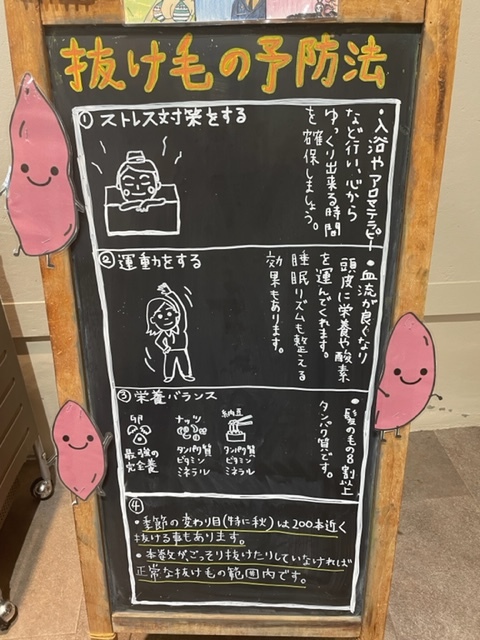 抜け毛の予防法
① ストレス対策をする
・入浴やアロマテラピー
など行い、心から
ゆっくり出来る時間
を確保しましょう。
② 運動をする
・血流が良くなり
頭皮に栄養や酸素
を運んでくれます。
睡眠リズムも整える
効果もあります。
③ 栄養バランス
・髪の毛の8割以上
タンパク質です。
卵
最強の
完全栄養
ナッツ
タンパク質
ビタミン
ミネラル
納豆
タンパク質
ビタミン
ミネラル
④
・季節の変わり目(特に秋)は200本近く
抜ける事もあります。
・本数が、ごっそり抜けたりしていなければ
正常な抜けもの範囲内です。